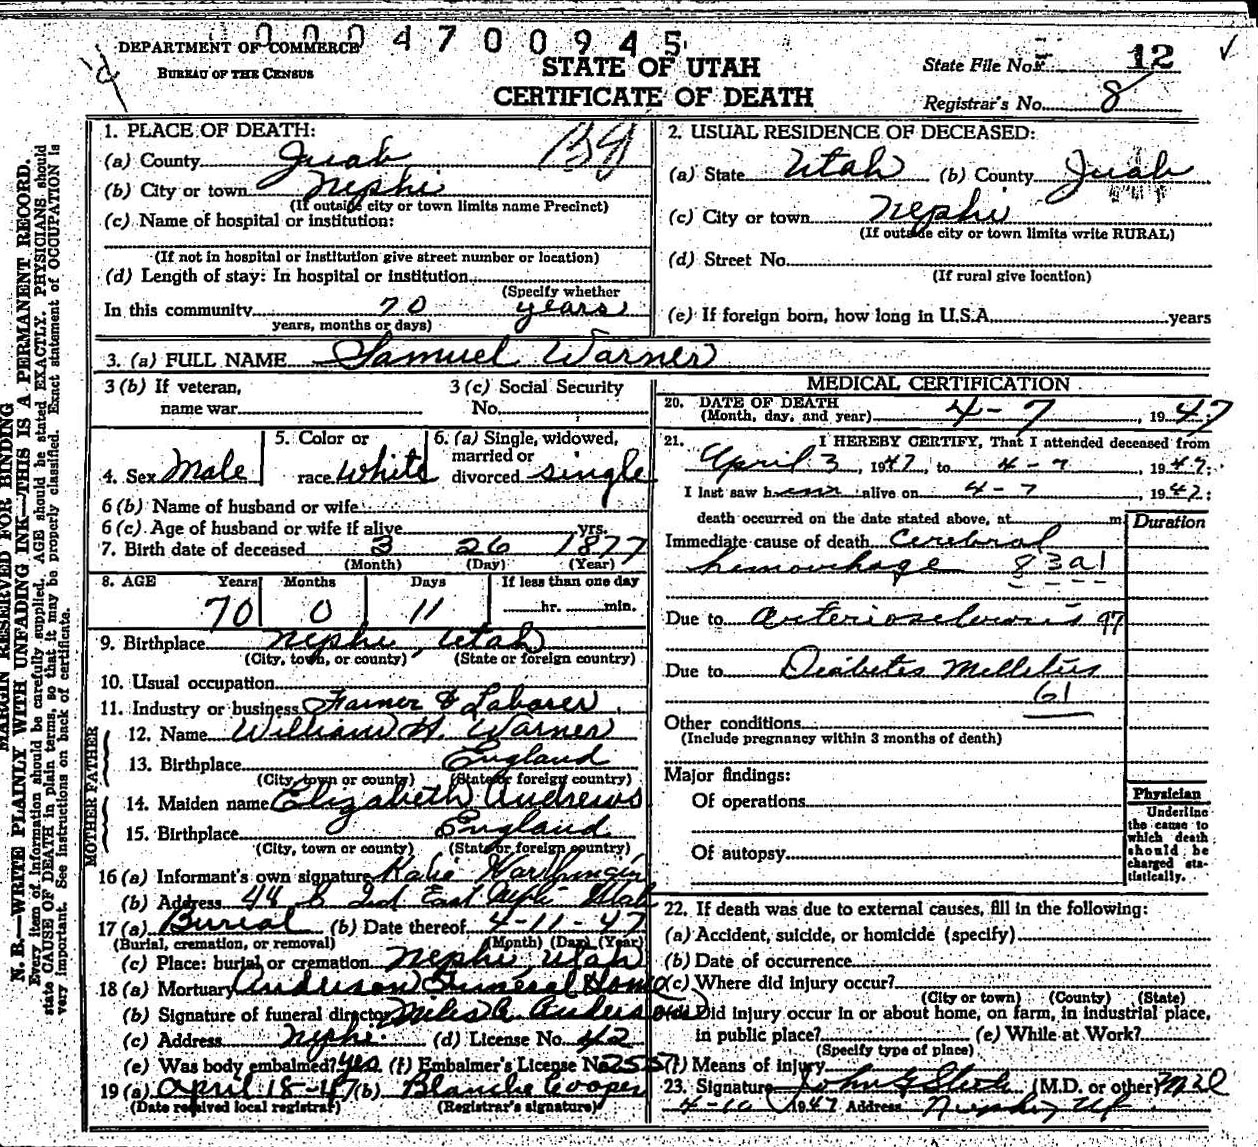 0004700945
DEPARTMENT OF COMMERCE
BUREAU OF THE CENSUS
STATE OF UTAH
CERTIFICATE OF DEATH
State File No. 12
Registrar's No. 8
MARGIN RESERVED FOR BINDING
N. B.—WRITE PLAINLY WITH UNFADING INK—THIS IS A PERMANENT RECORD.
Every item of information should be carefully supplied. AGE should be stated EXACTLY. PHYSICIANS should
state CAUSE OF DEATH in plain terms, so that it may be properly classified. Exact statement of OCCUPATION is
very important. See instructions on back of certificate.
1. PLACE OF DEATH:
(a) County Juab
(b) City or town Nephi
(If outside city or town limits name Precinct)
(c) Name of hospital or institution:
(If not in hospital or institution give street number or location)
(d) Length of stay: In hospital or institution
(Specify whether
In this community 70 years
years, months or days)
2. USUAL RESIDENCE OF DECEASED:
(a) State Utah (b) County Juab
(c) City or town Nephi
(If outside city or town limits write RURAL)
(d) Street No.
(If rural give location)
(e) If foreign born, how long in U.S.A. years
3. (a) FULL NAME Samuel Warner
3 (b) If veteran, name war
3 (c) Social Security No.
4. Sex Male
5. Color or race White
6. (a) Single, widowed, married or divorced single
6 (b) Name of husband or wife
6 (c) Age of husband or wife if alive yrs.
7. Birth date of deceased 3 26 1877
(Month) (Day) (Year)
8. AGE Years Months Days If less than one day
70 0 11 hr. min.
9. Birthplace Nephi, Utah
(City, town, or county) (State or foreign country)
10. Usual occupation
11. Industry or business Farmer & Laborer
FATHER
12. Name William H. Warner
13. Birthplace England
(City, town or county) (State or foreign country)
MOTHER
14. Maiden name Elizabeth Andrews
15. Birthplace England
(City, town or county) (State or foreign country)
16 (a) Informant's own signature Katie
(b) Address 44 S 3rd East Nephi Utah
17 (a) Burial (b) Date thereof 4-11-47
(Burial, cremation, or removal) (Month) (Day) (Year)
(c) Place: burial or cremation Nephi, Utah
18 (a) Mortuary Anderson Funeral Home
(b) Signature of funeral director Miles A. Anderson
(c) Address Nephi. (d) License No. 42
(e) Was body embalmed? yes (f) Embalmer's License No. 255
19 (a) April 18-47 (b) Blanche Cooper
(Date received local registrar) (Registrar's signature)
MEDICAL CERTIFICATION
20. DATE OF DEATH
(Month, day, and year) 4-7, 1947
21. I HEREBY CERTIFY, That I attended deceased from
April 3, 1947, to 4-7, 1947;
I last saw him alive on 4-7, 1947;
death occurred on the date stated above, at m
Duration
Immediate cause of death Cerebral
hemorrhage 83a1
Due to arteriosclerosis 97
Due to Diabetes Mellitus
61
Other conditions
(Include pregnancy within 3 months of death)
Major findings:
Of operations
Of autopsy
Physician
Underline
the cause to
which death
should be
charged sta-
tistically.
22. If death was due to external causes, fill in the following:
(a) Accident, suicide, or homicide (specify)
(b) Date of occurrence
(c) Where did injury occur?
(City or town) (County) (State)
Did injury occur in or about home, on farm, in industrial place,
in public place? (e) While at Work?
(Specify type of place)
(f) Means of injury
23. Signature John G Steele (M.D. or other) M.D.
4-10 1947 Address Nephi, Ut.